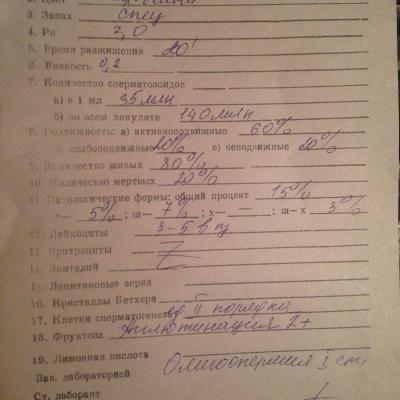 3. Запах спец
4. Рн 7,0
5. Время разжижения 20'
6. Вязкость 0,2
7. Количество сперматозоидов
а) в 1 мл 35 млн
б) во всем эякуляте 140 млн
8. Подвижность: а) активноподвижные 60%
б) слабоподвижные 20% в) неподвижные 20%
9. Количество живых 80%
10. Количество мертвых 20%
11. Патологические формы: общий процент 15%
г— 5% ; ш— 7% ; х— — ; ш—х 3%
12. Лейкоциты 3-5 в пз
13. Эритроциты
14. Эпителий
15. Лецитиновые зерна
16. Кристаллы Бетхера
17. Клетки сперматогенеза II порядка
18. Фруктоза Агглютинация 2+
19. Лимонная кислота Олигоспермия I ст.
Зав. лабораторией
Ст. лаборант